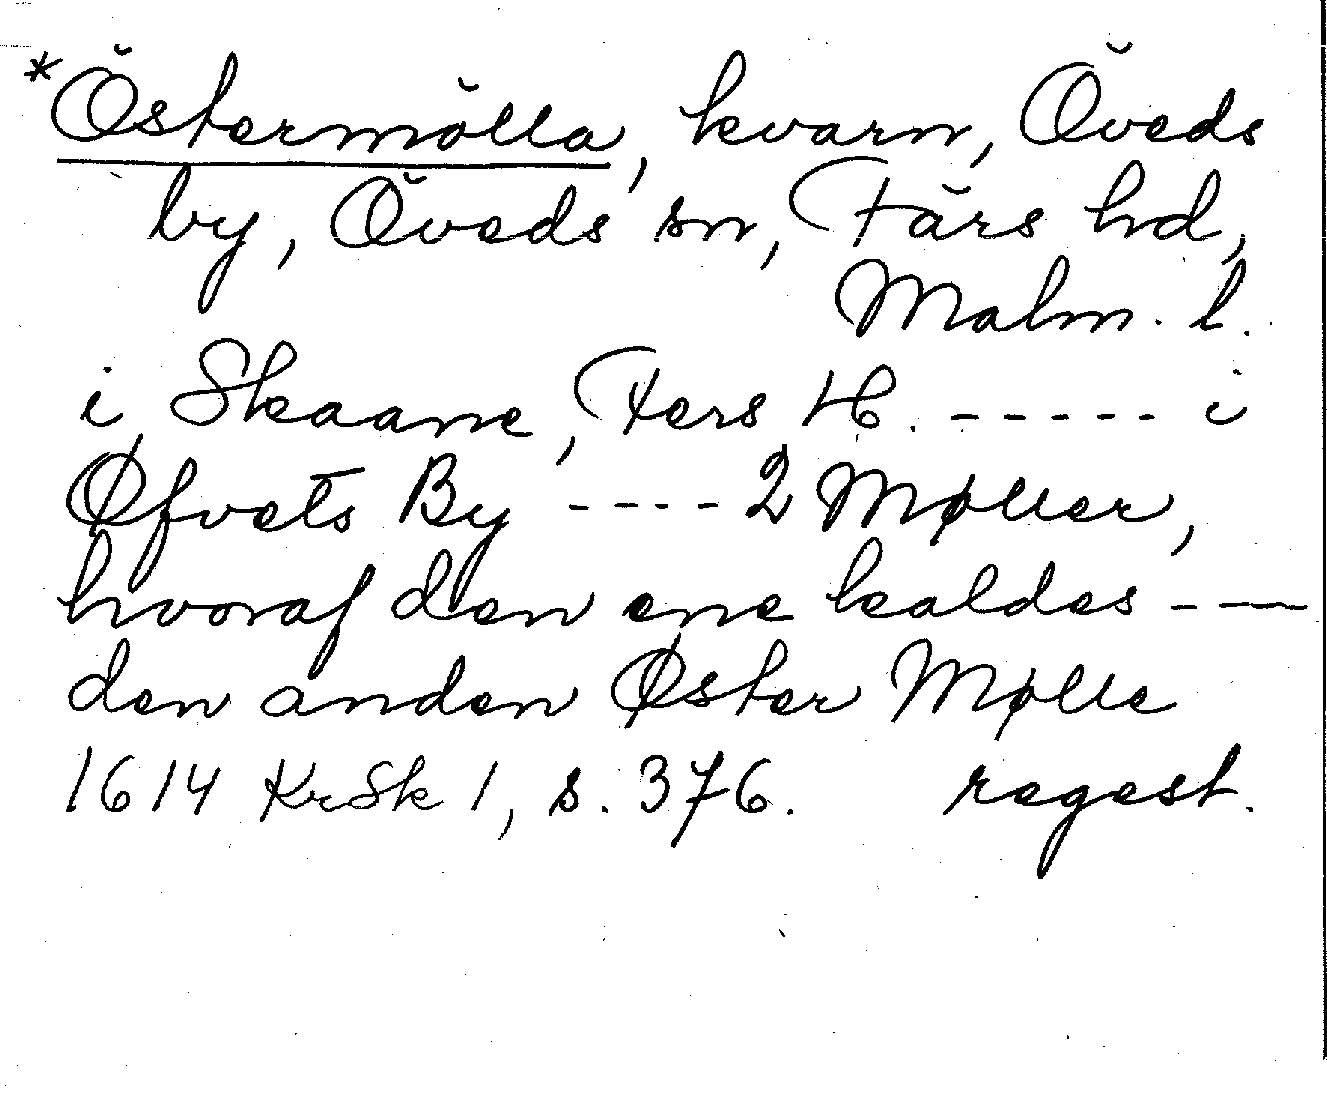 *Östermölla, kvarn, Öveds
by, Öveds sn, Färs hd,
Malm. l.
i Skaane, Fers H. ----- i
Øfvets By ---- 2 Møller,
hvoraf den ene kaldes - —
den anden Øster Mølle
1614 KrSk 1, s. 376. regest.